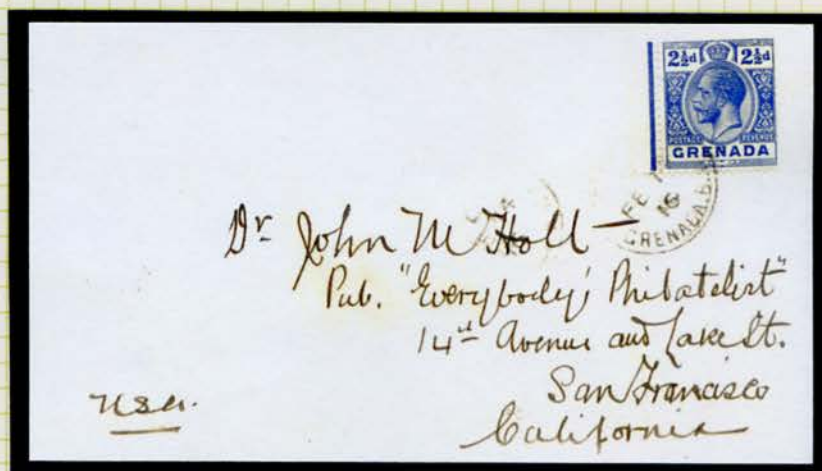 2½d 2½d
POSTAGE REVENUE
GRENADA
FE
16
GRENADA.B.
Dr John M Holt
Pub. "Everybody's Philatelist"
14th Avenue and Lake St.
San Francisco
California
USA.